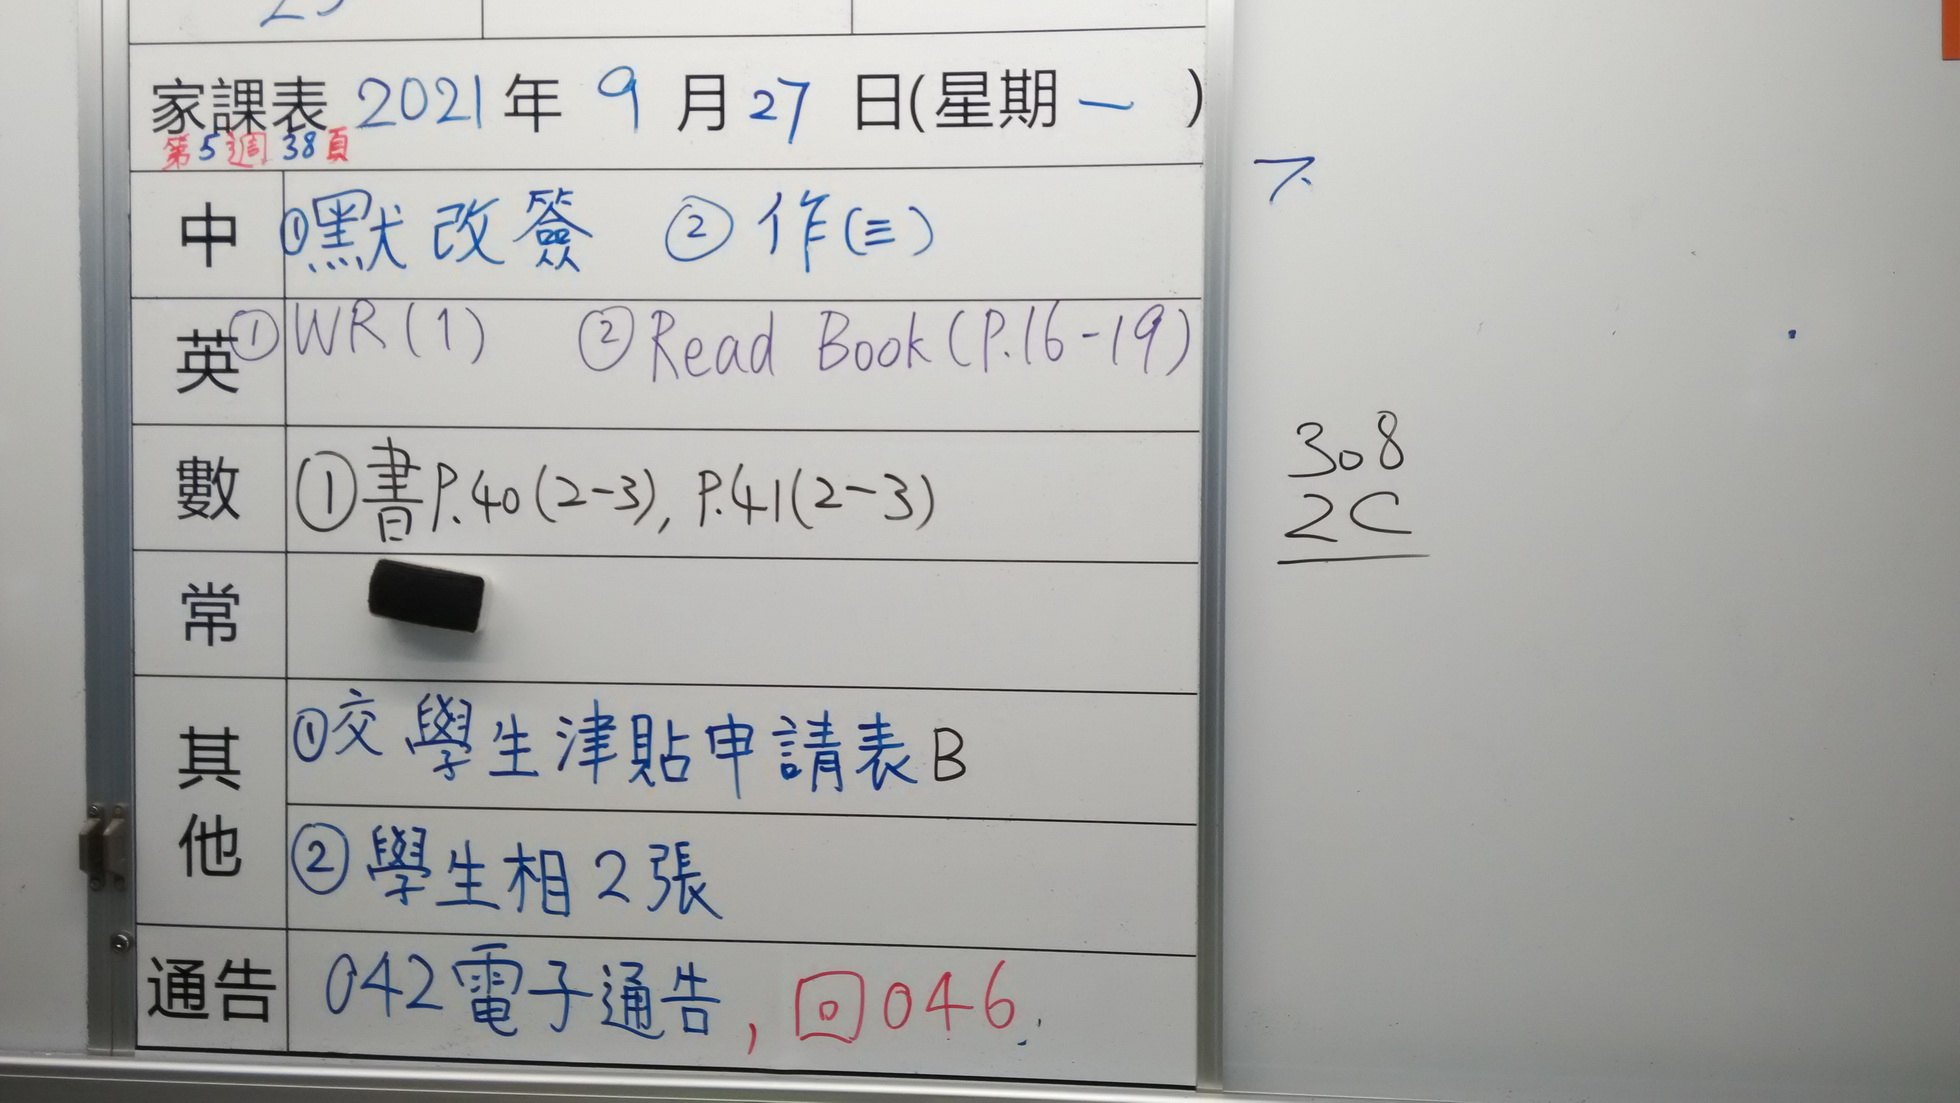 家課表 2021年 9月27日(星期一)
第5週 38頁
中 ①默改簽 ②作(三)
英 ①WR(1) ②Read Book(P.16-19)
數 ①書P.40(2-3), P.41(2-3)
常
其他 ①交學生津貼申請表B
②學生相2張
通告 042電子通告, 回046.
308
2C